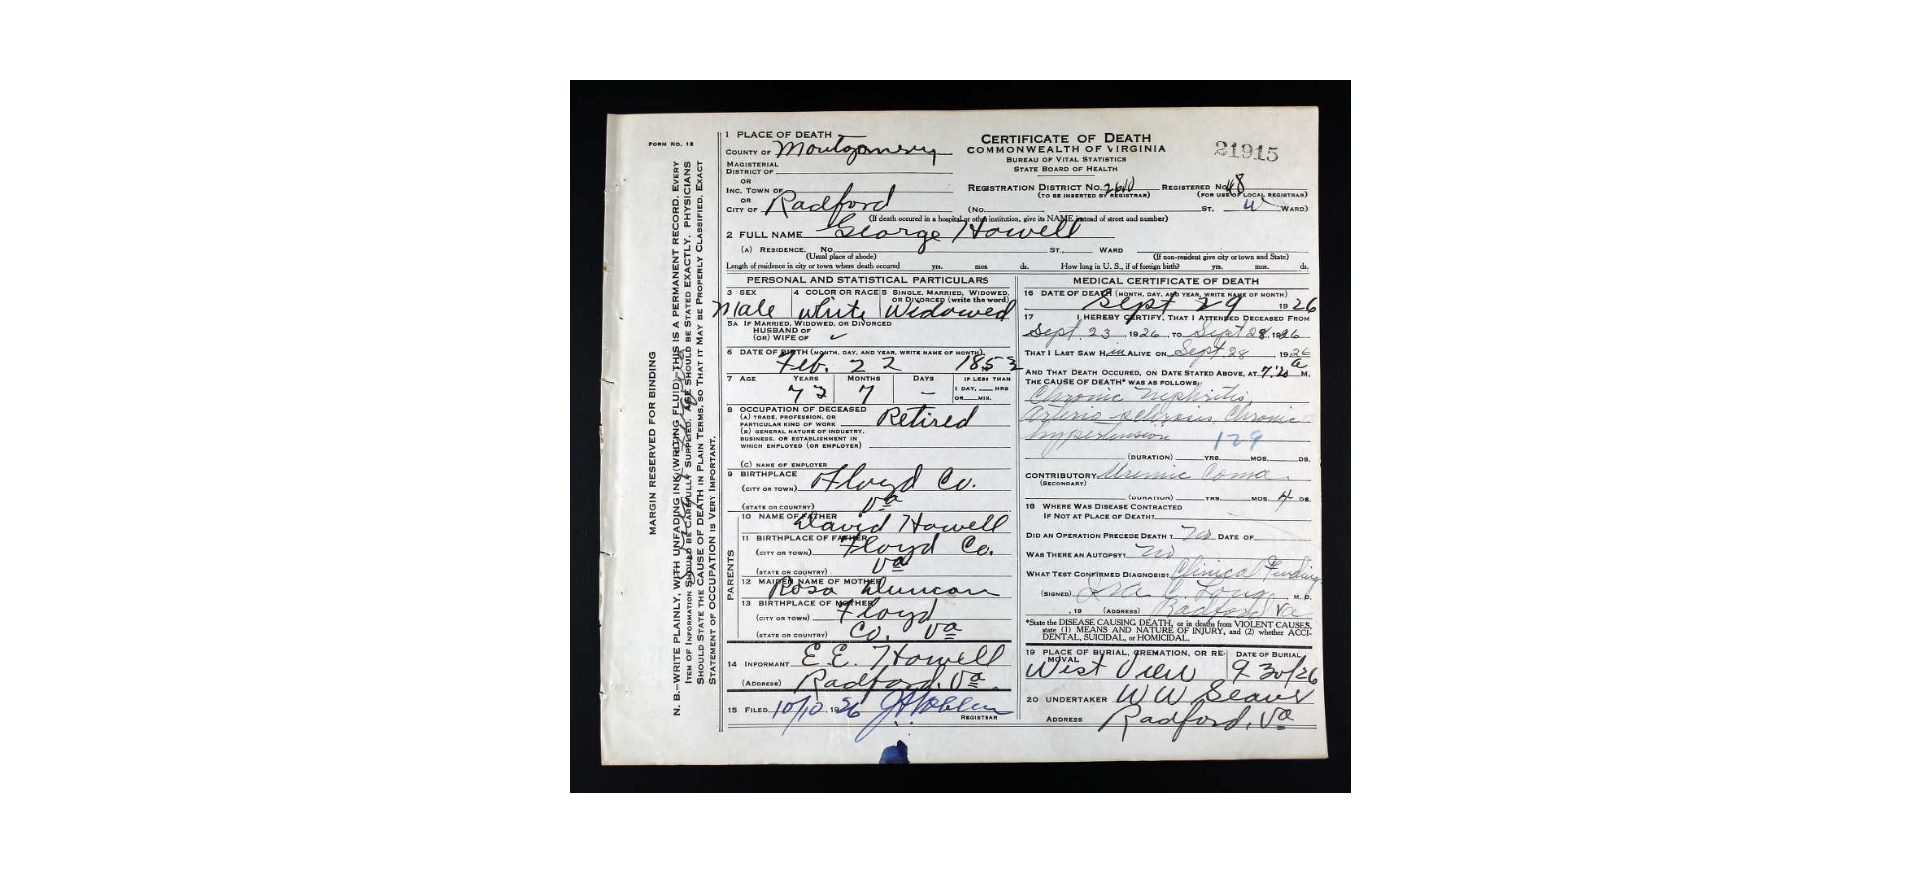 FORM NO. 18
MARGIN RESERVED FOR BINDING
N. B.—WRITE PLAINLY, WITH UNFADING INK (WRITING FLUID)—THIS IS A PERMANENT RECORD. EVERY
ITEM OF INFORMATION SHOULD BE CAREFULLY SUPPLIED. AGE SHOULD BE STATED EXACTLY. PHYSICIANS
SHOULD STATE THE CAUSE OF DEATH IN PLAIN TERMS, SO THAT IT MAY BE PROPERLY CLASSIFIED. EXACT
STATEMENT OF OCCUPATION IS VERY IMPORTANT.
1 PLACE OF DEATH
COUNTY OF Montgomery
MAGISTERIAL
DISTRICT OF
OR
INC. TOWN OF
OR
CITY OF Radford
CERTIFICATE OF DEATH
COMMONWEALTH OF VIRGINIA
BUREAU OF VITAL STATISTICS
STATE BOARD OF HEALTH
21915
REGISTRATION DISTRICT NO. REGISTERED NO. 48
(TO BE INSERTED BY REGISTRAR) (FOR USE OF LOCAL REGISTRAR)
(No. ST. W WARD)
(If death occured in a hospital or other institution, give its NAME instead of street and number)
2 FULL NAME George Howell
(A) RESIDENCE. No. ST., WARD
(Usual place of abode) (If non-resident give city or town and State)
Length of residence in city or town where death occured yrs. mos. ds. How long in U. S., if of foreign birth? yrs. mos. ds.
PERSONAL AND STATISTICAL PARTICULARS
3 SEX 4 COLOR OR RACE 5 SINGLE, MARRIED, WIDOWED,
OR DIVORCED (write the word)
Male White Widowed
5A IF MARRIED, WIDOWED, OR DIVORCED
HUSBAND OF
(OR) WIFE OF
6 DATE OF BIRTH (MONTH, DAY, AND YEAR, WRITE NAME OF MONTH)
Feb. 22 1853
7 AGE YEARS MONTHS DAYS IF LESS THAN
1 DAY, HRS
OR MIN.
73 7 –
8 OCCUPATION OF DECEASED
(A) TRADE, PROFESSION, OR
PARTICULAR KIND OF WORK Retired
(B) GENERAL NATURE OF INDUSTRY,
BUSINESS, OR ESTABLISHMENT IN
WHICH EMPLOYED (OR EMPLOYER)
(C) NAME OF EMPLOYER
9 BIRTHPLACE Floyd Co.
(CITY OR TOWN)
(STATE OR COUNTRY) Va
PARENTS
10 NAME OF FATHER David Howell
11 BIRTHPLACE OF FATHER
(CITY OR TOWN) Floyd Co.
(STATE OR COUNTRY) Va
12 MAIDEN NAME OF MOTHER
Rosa Duncan
13 BIRTHPLACE OF MOTHER
(CITY OR TOWN) Floyd
(STATE OR COUNTRY) Co. Va
14 INFORMANT E.E. Howell
(ADDRESS) Radford, Va.
15 FILED 10/10, 1926
REGISTRAR
MEDICAL CERTIFICATE OF DEATH
16 DATE OF DEATH (MONTH, DAY, AND YEAR, WRITE NAME OF MONTH)
Sept 29 1926
17 I HEREBY CERTIFY, THAT I ATTENDED DECEASED FROM
Sept. 23, 1926, TO Sept 28, 1926
THAT I LAST SAW Him ALIVE ON Sept 28 1926
AND THAT DEATH OCCURED, ON DATE STATED ABOVE, AT 7:20 a M.
THE CAUSE OF DEATH* WAS AS FOLLOWS:
Chronic Nephritis
Arterio sclerosis, Chronic
hypertension 129
(DURATION) YRS. MOS. DS.
CONTRIBUTORY Uremic Coma.
(SECONDARY)
(DURATION) YRS. MOS. 4 DS.
18 WHERE WAS DISEASE CONTRACTED
IF NOT AT PLACE OF DEATH?
DID AN OPERATION PRECEDE DEATH? No DATE OF
WAS THERE AN AUTOPSY? No
WHAT TEST CONFIRMED DIAGNOSIS? Clinical Findings
(SIGNED) Ira C. Long M. D.
, 19 (ADDRESS) Radford Va
*State the DISEASE CAUSING DEATH, or in deaths from VIOLENT CAUSES,
state (1) MEANS AND NATURE OF INJURY, and (2) whether ACCI-
DENTAL, SUICIDAL, or HOMICIDAL.
19 PLACE OF BURIAL, CREMATION, OR RE- DATE OF BURIAL
MOVAL
West View 9 30/26
20 UNDERTAKER W W Seaver
ADDRESS Radford, Va